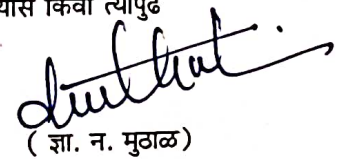 यास किंवा त्यापुढे
( ज्ञा. न. मुठाळ)